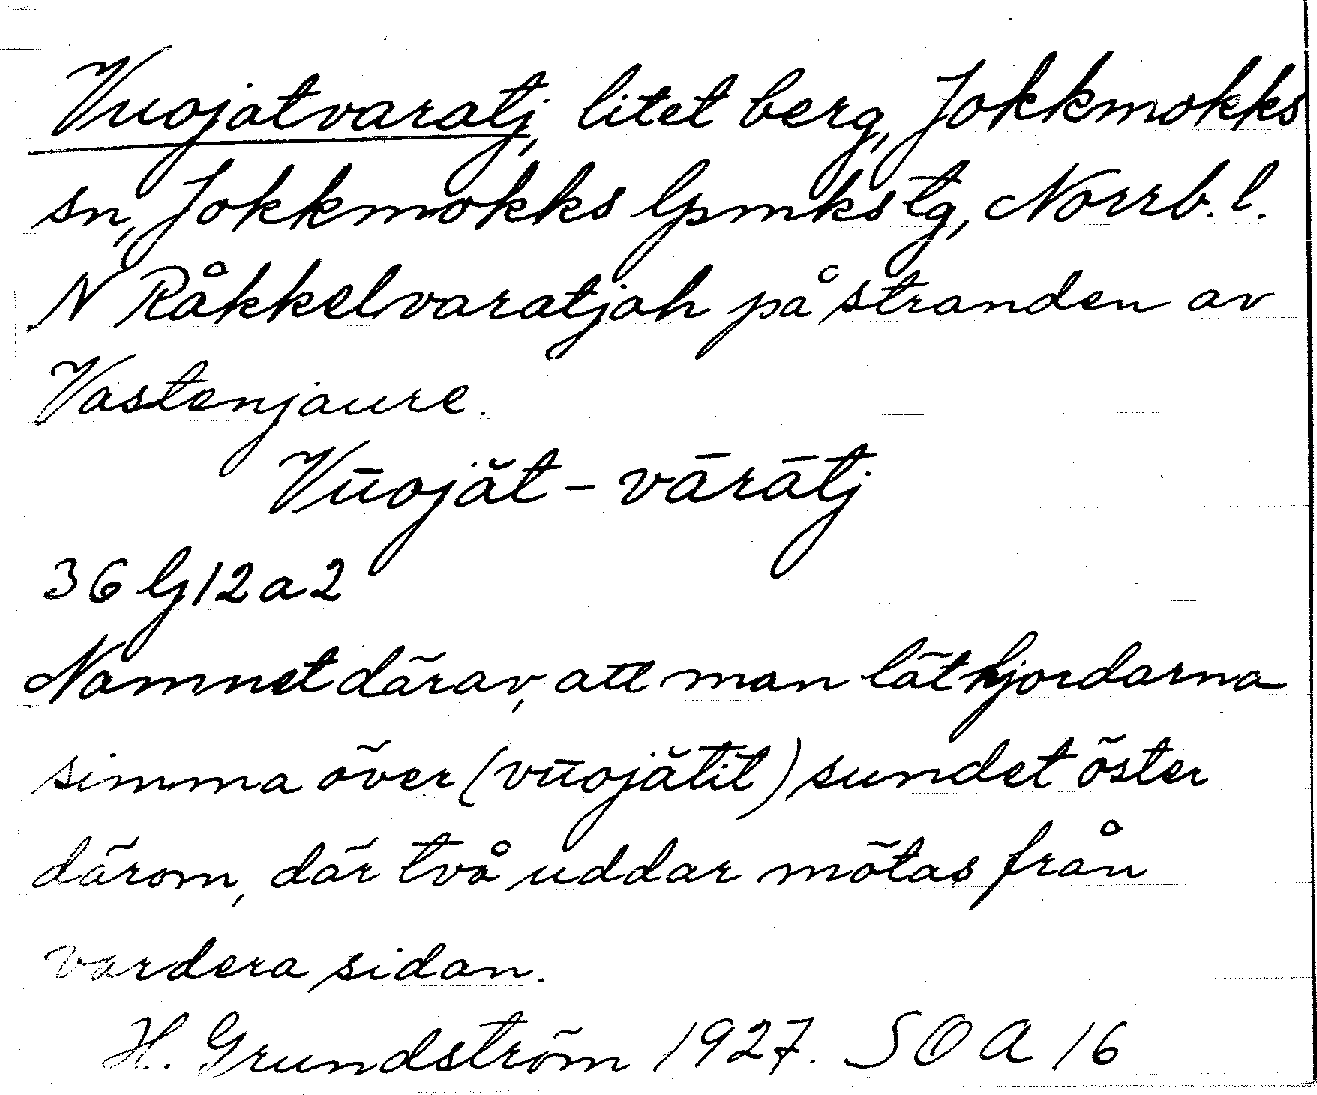 Vuojatvaratj, litet berg, Jokkmokks
sn, Jokkmokks lpmkstg, Norrb. l.
N Råkkelvaratjah på stranden av
Vastenjaure.
Vūojăt - vārātj
36 G12a2
Namnet därav, att man låt hjordarna
simma över (vūojătit) sundet öster
därom, där två uddar mötas från
vardera sidan.
H. Grundström 1927. SOA 16